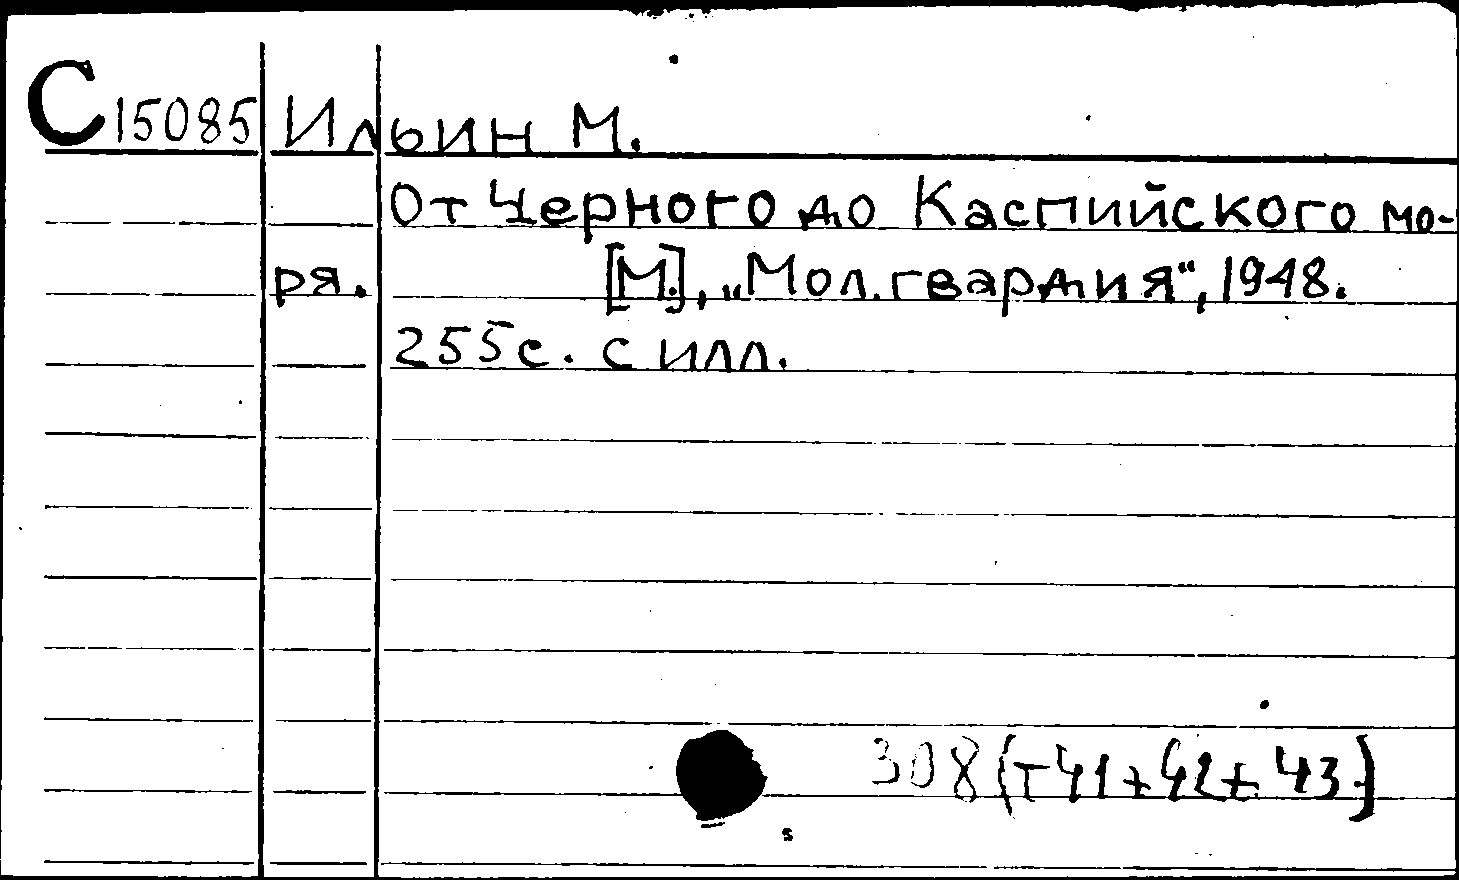 С15085 Ильин М.
От Черного до Каспийского мо-
ря. [М.], „Мол. гвардия“, 1948.
255 с. с илл.
308(т41+42+43)
s